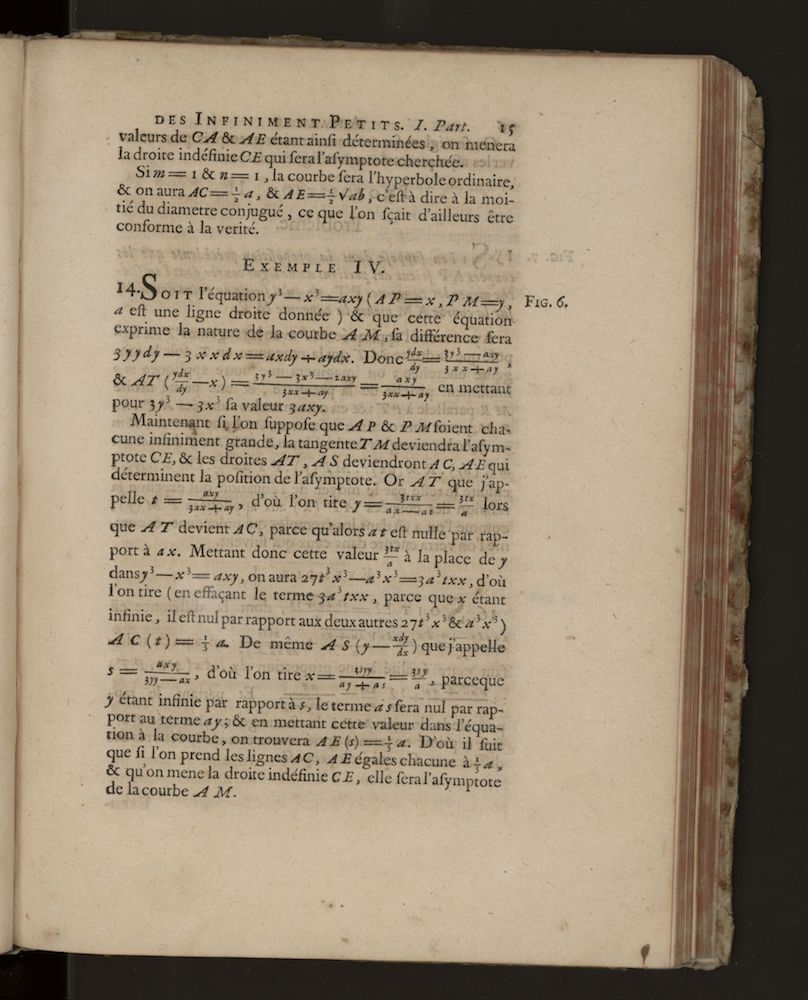 DES INFINIMENT PETITS. I. Part. 15
valeurs de CA & AE étant ainſi déterminées, on menera
la droite indéfinie CE qui ſera l'aſymptote cherchée.
Si m = 1 & n = 1, la courbe ſera l'hyperbole ordinaire,
& on aura AC = ½ a, & AE = ½ √ab, c'eſt à dire à la moi-
tié du diametre conjugué, ce que l'on ſçait d'ailleurs être
conforme à la verité.
EXEMPLE IV.
14. SOIT l'équation y³ — x³ = axy (AP = x, PM = y, FIG. 6.
a eſt une ligne droite donnée) & que cette équation
exprime la nature de la courbe AM, ſa différence ſera
3yydy — 3xxdx = axdy + aydx. Donc ydx/dy = 3y³ — axy / 3xx + ay,
& AT (ydx/dy — x) = 3y³ — 3x³ — 2axy / 3xx + ay = axy / 3xx + ay en mettant
pour 3y³ — 3x³ ſa valeur 3axy.
Maintenant ſi l'on ſuppoſe que AP & PM ſoient cha-
cune infiniment grande, la tangente TM deviendra l'aſym-
ptote CE, & les droites AT, AS deviendront AC, AE qui
déterminent la poſition de l'aſymptote. Or AT que j'ap-
pelle t = axy / 3xx + ay, d'où l'on tire y = 3txx / ax — at = 3tx / a lors
que AT devient AC, parce qu'alors at eſt nulle par rap-
port à ax. Mettant donc cette valeur 3tx / a à la place de y
dans y³ — x³ = axy, on aura 27t³x³ — a³x³ = 3a³txx, d'où
l'on tire (en effaçant le terme 3a³txx, parce que x étant
infinie, il eſt nul par rapport aux deux autres 27t³x³ & a³x³)
AC (t) = ⅓ a. De même AS (y — xdy/dx) que j'appelle
s = axy / 3yy — ax, d'où l'on tire x = 3syy / ay + as = 3sy / a, parceque
y étant infinie par rapport à s, le terme as ſera nul par rap-
port au terme ay; & en mettant cette valeur dans l'équa-
tion à la courbe, on trouvera AE (s) = ⅓ a. D'où il ſuit
que ſi l'on prend les lignes AC, AE égales chacune à ⅓ a,
& qu'on mene la droite indéfinie CE, elle ſera l'aſymptote
de la courbe AM.